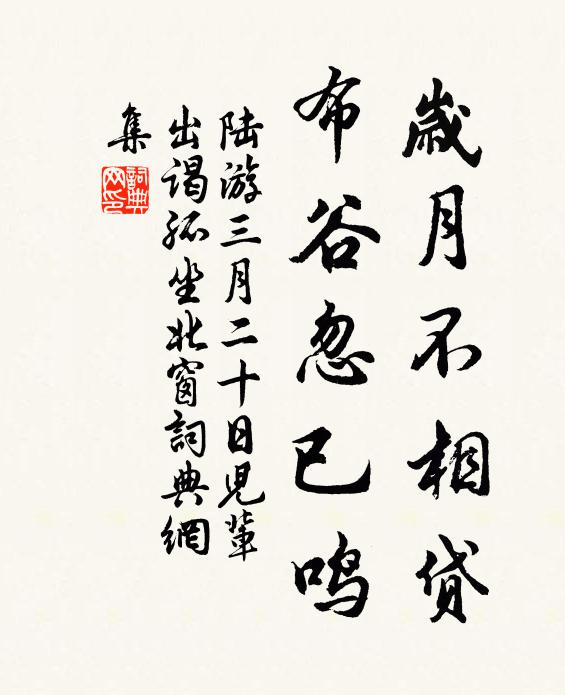 歲月不相貸
布谷忽已鸣
陆游三月二十日児輩
出謁孤坐北窗詞典網
集
詞典
网印